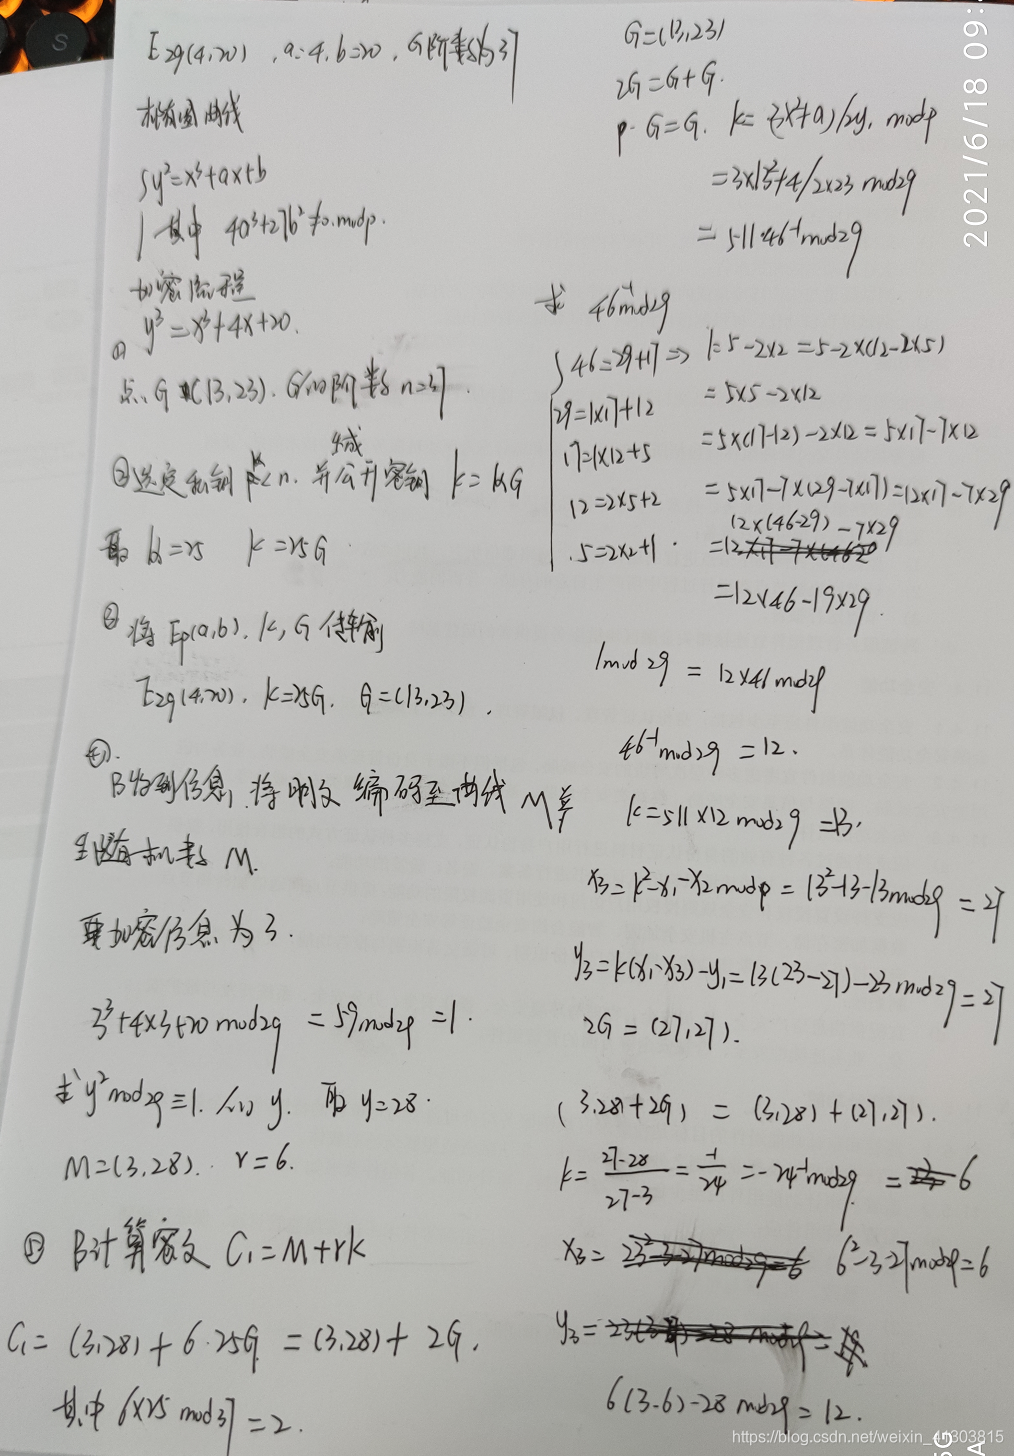 E29(4,20) , a=4, b=20, G阶数为37
椭圆曲线
y²=x³+ax+b
其中 4a³+27b²≠0 modp.
加密流程
y³=x³+4x+20.
①
点G (13,23). G的阶数n=37.
②选定私钥 k<n. 并生成公开密钥 k=kG
取 k=25 k=25G
③ 将 Ep(a,b), k, G 传输
E29(4,20), k=25G. G=(13,23).
④.
B收到信息, 将明文编码至曲线M并
随机数 M.
要加密信息为 3.
3³+4×3+20 mod29 =59 mod29 =1.
求 y²mod29≡1. 的 y. 取 y=28.
M=(3,28). r=6.
⑤ B计算密文 C₁=M+rk
C₁= (3,28)+6·25G =(3,28)+ 2G.
其中 6×25 mod37 =2.
G=(13,23)
2G=G+G.
p·G=G. k=(3x²+a)/2y, modp
=3×13²+4/2×23 mod29
=511·46⁻¹mod29
求 46⁻¹mod29
46=29+17 => 1=5-2×2 =5-2×(12-2×5)
=5×5-2×12
29=1×17+12
=5×(17-12)-2×12=5×17-7×12
17=1×12+5
=5×17-7×(29-1×17)=12×17-7×29
12=2×5+2
12×(46-29)-7×29
5=2×2+1.
=12
=12×46-19×29.
1mod29 = 12×46 mod29
46⁻¹mod29 =12.
k=511×12 mod29 =13.
x₃=k²-x₁-x₂modp = 13²-13-13mod29 =27
y₃=k(x₁-x₃)-y₁=13(23-27)-23 mod29=27
2G=(27,27).
(3,28)+2G) = (3,28)+(27,27).
k=27-28/27-3=-1/24=-24⁻¹mod29 = 6
x₃= 6²-3-27mod29=6
y₃=
6(3-6)-28 mod29=12.
2021/6/18 09:
https://blog.csdn.net/weixin_44303815